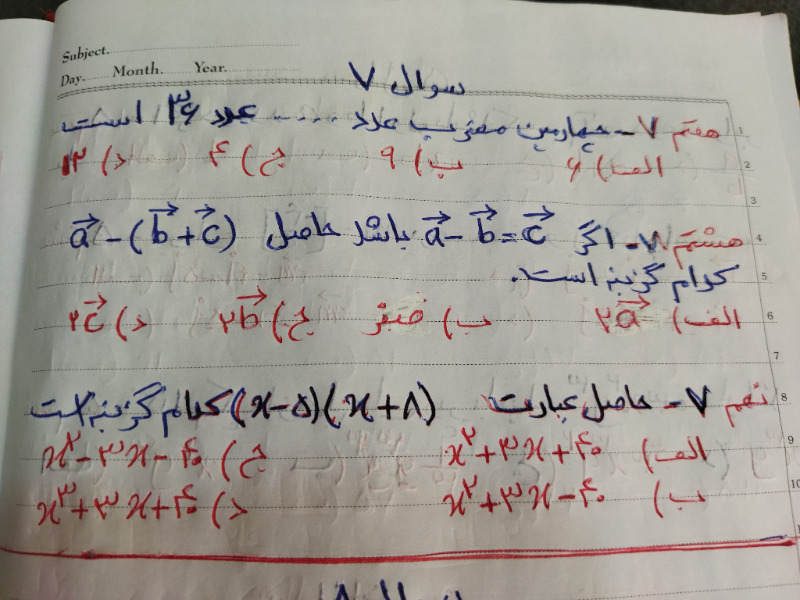 Subject.
Day. Month. Year.
سوال ۷
هفتم ۷- چهارمین مضرب عدد .... عدد ۳۶ است
الف) ۶ ب) ۹ ج) ۴ د) ۱۲
هشتم ۷- اگر a⃗ - b⃗ = c⃗ باشد حاصل a⃗ - (b⃗ + c⃗)
کدام گزینه است.
الف) ۲a⃗ ب) صفر ج) ۲b⃗ د) ۲c⃗
نهم ۷- حاصل عبارت (x-۵)(x+۸) کدام گزینه است
الف) x²+۳x+۴۰ ج) x²-۳x-۴۰
ب) x²+۳x-۴۰ د) x³+۳x+۴۰
1
2
3
4
5
6
7
8
9
10